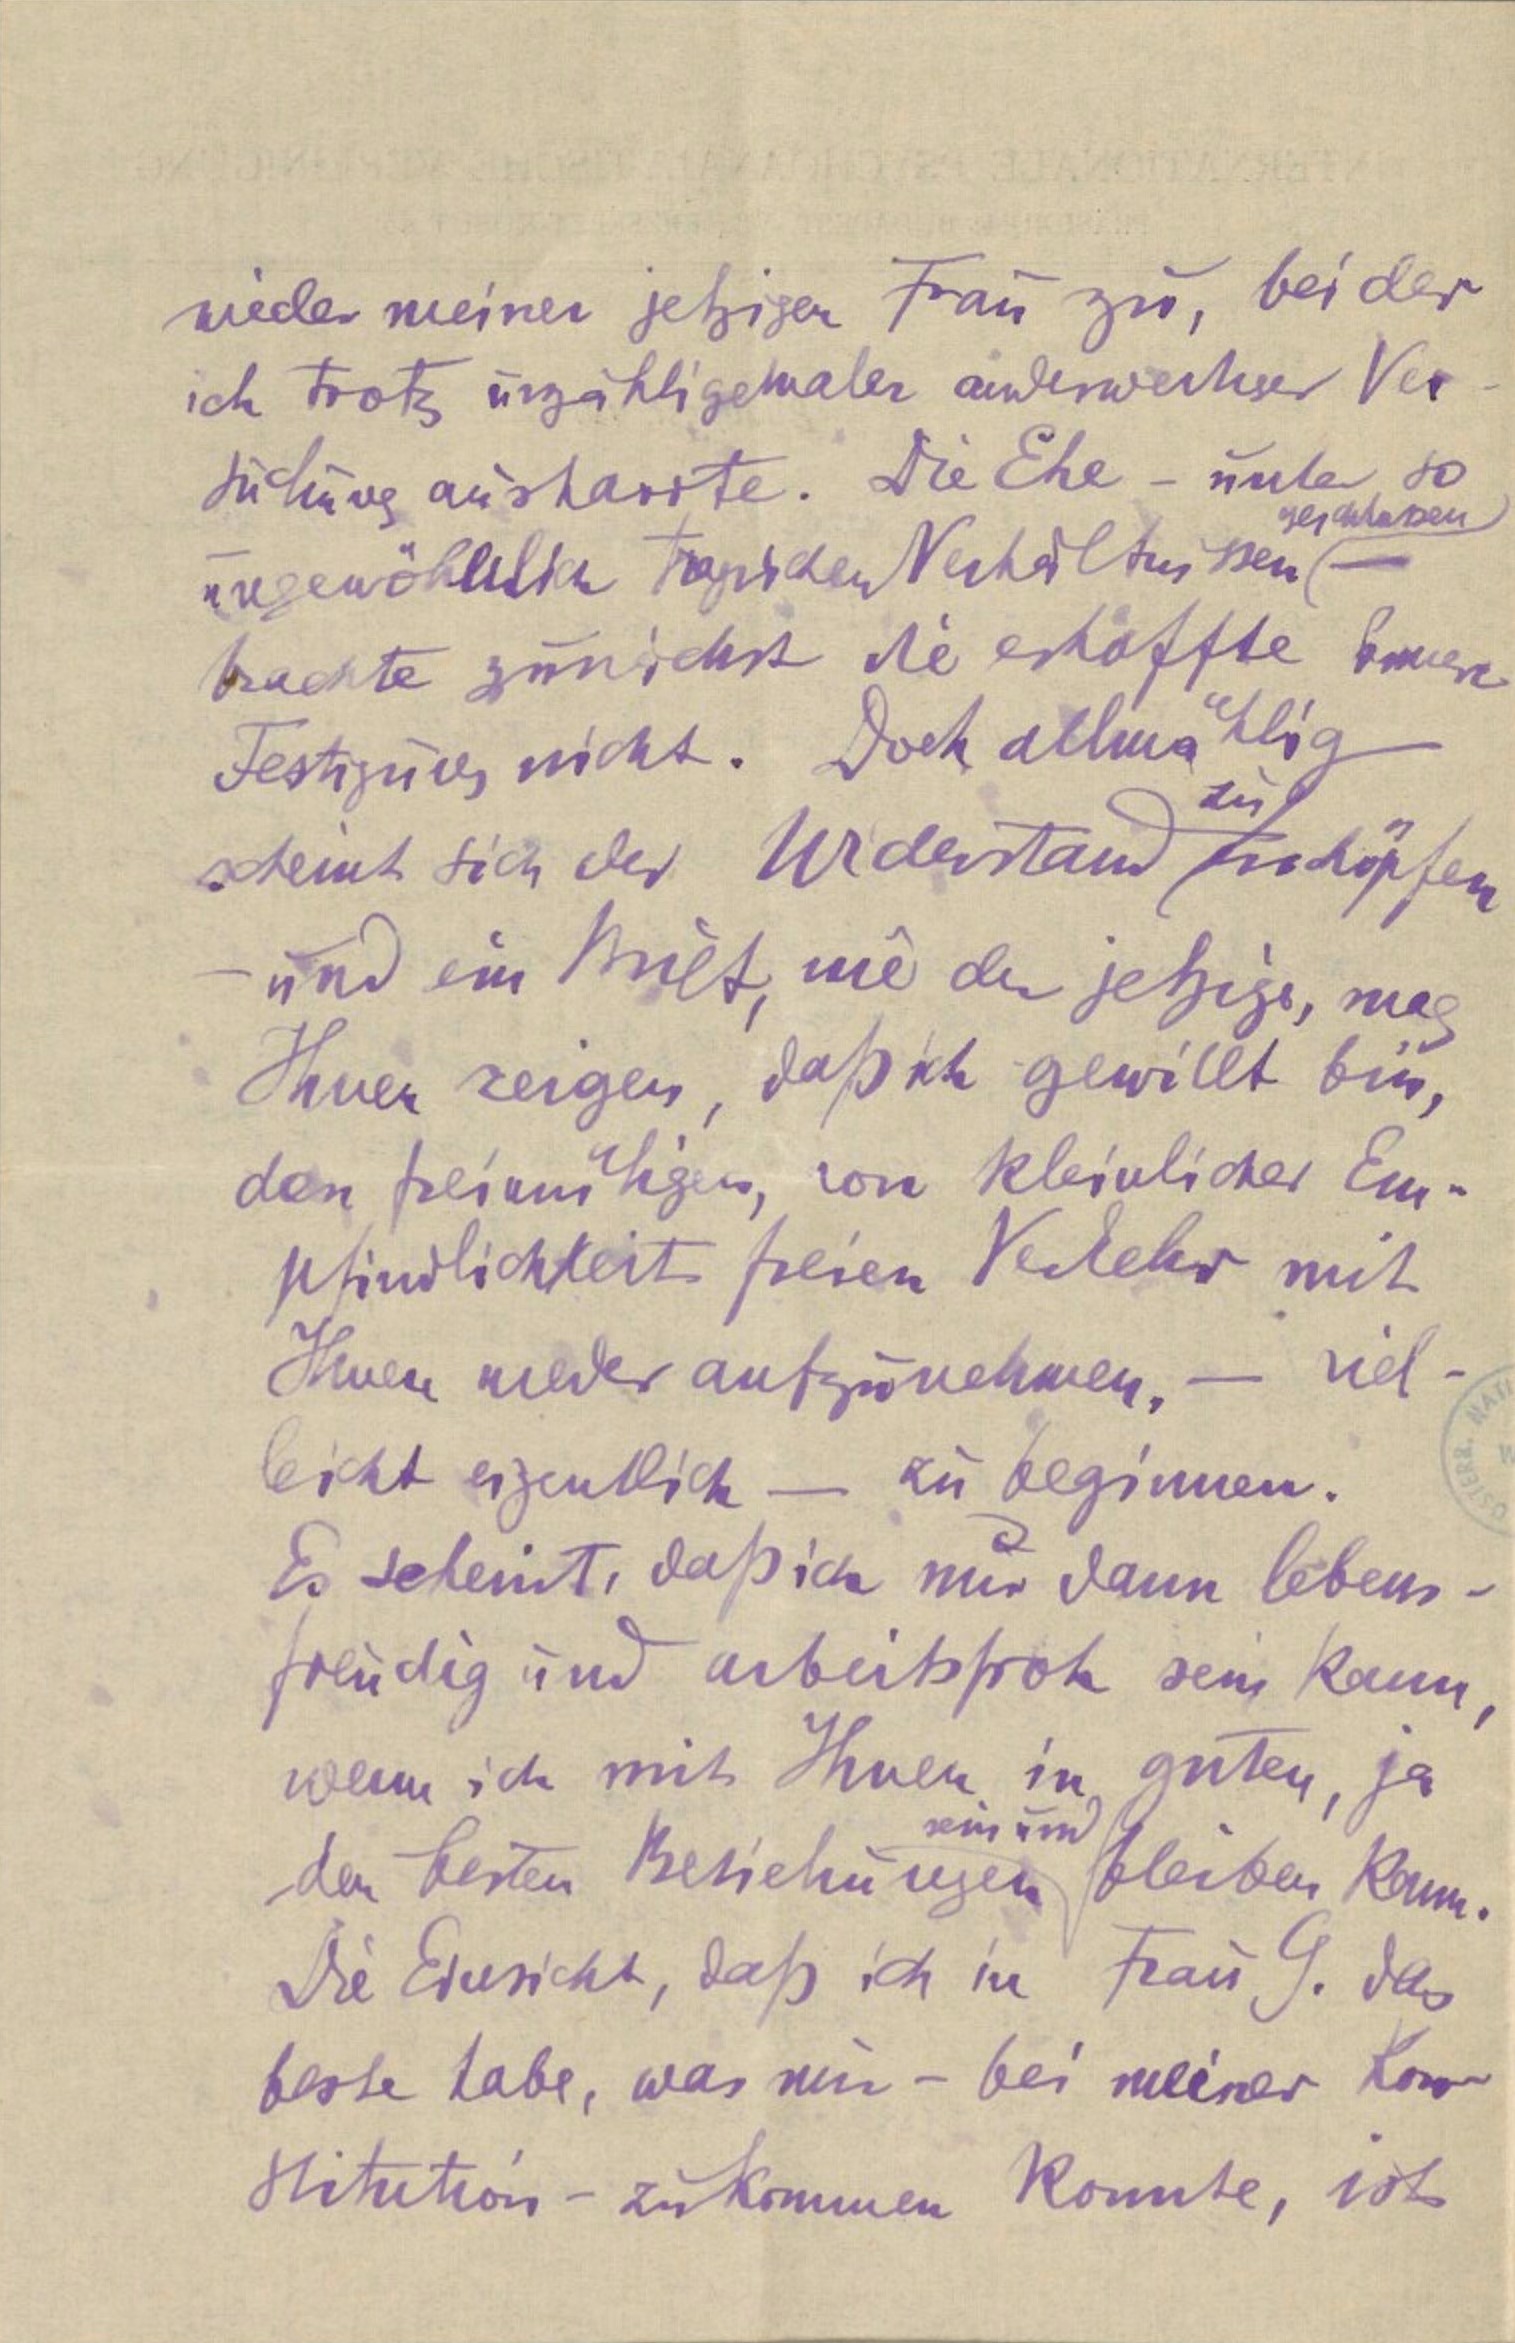 wieder meiner jetzigen Frau zu, bei der
ich trotz unzähligemaler anderweitiger Ver-
suchung ausharrte. Die Ehe – unter so
ungewöhnlich tragischen Verhältnissen geschlossen –
brachte zunächst die erhoffte innere
Festigung nicht. Doch allmählig
scheint sich der Widerstand zu erschöpfen
– und ein Brief, wie der jetzige, mag
Ihnen zeigen, daß ich gewillt bin,
den freimüthigen, von kleinlicher Em-
pfindlichkeit freien Verkehr mit
Ihnen wieder aufzunehmen, – viel-
leicht eigentlich – zu beginnen.
Es scheint, daß ich nur dann lebens-
freudig und arbeitsfroh sein kann,
wenn ich mit Ihnen in guten, ja
den besten Beziehungen sein und bleiben kann.
Die Einsicht, daß ich in Frau G. das
beste habe, was mir – bei meiner Kon-
stitution – zukommen konnte, ist
ÖSTERR. NATI